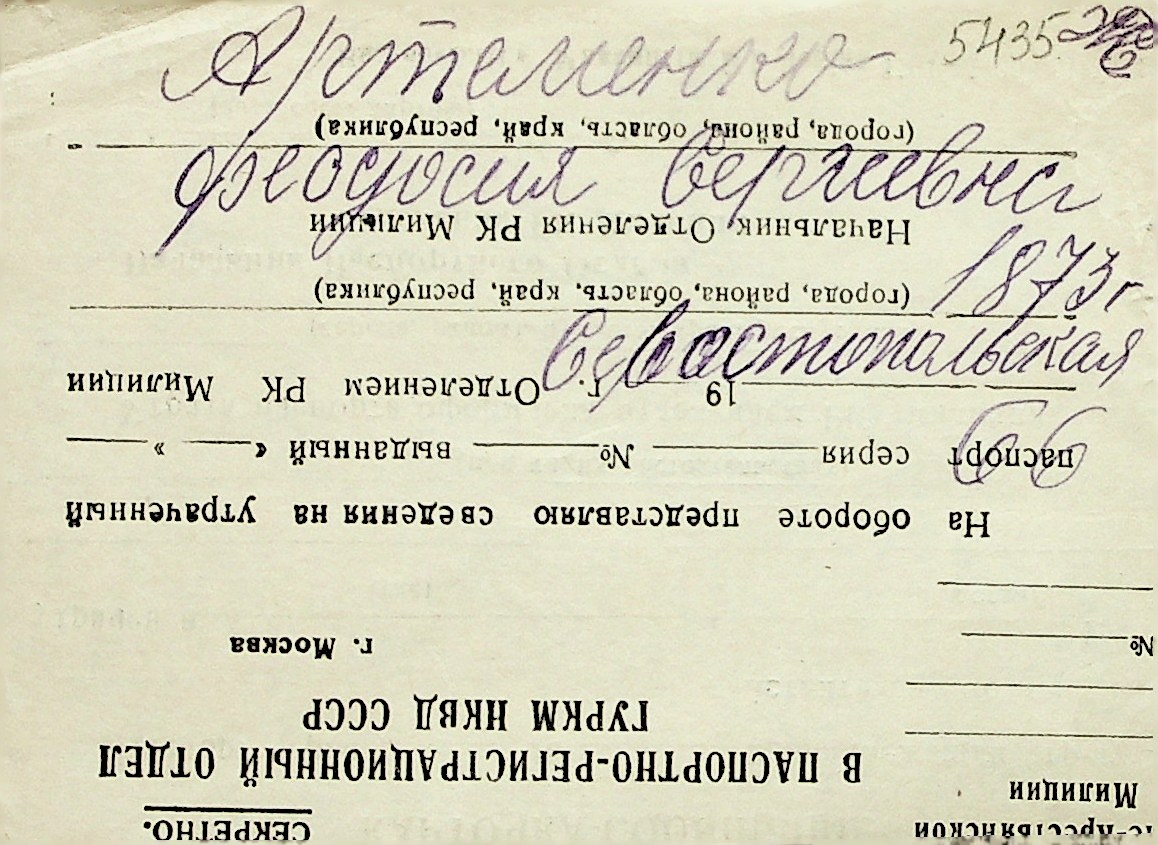 Артеменко 5435
Феодосия Сергиевна
1873 г
Севастопольская
66
СЕКРЕТНО.
Милиции
В ПАСПОРТНО-РЕГИСТРАЦИОННЫЙ ОТДЕЛ
ГУРКМ НКВД СССР
г. Москва
№
На обороте представляю сведения на утраченный
паспорт серия № выданный « »
19 г. Отделением РК Милиции
(города, района, область, край, республика)
Начальник Отделения РК Милиции
(города, района, область, край, республика)